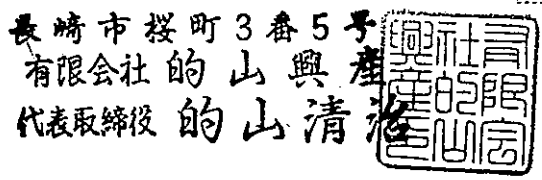 長崎市桜町3番5号
有限会社 的山興産
代表取締役 的山清治
有限会
社的山
興産之印